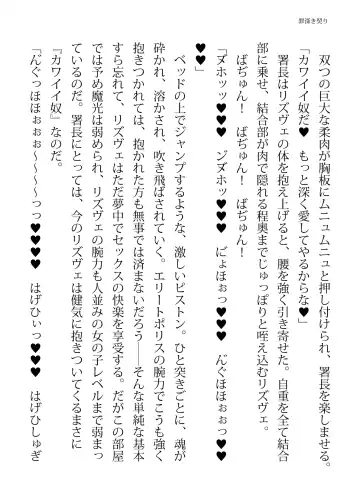 罪深き契り
双つの巨大な柔肉が胸板にムニュムニュと押し付けられ、署長を楽しませる。
「カワイイ奴だ♥　もっと深く愛してやるからな♥」
署長はリズヴェの体を抱え上げると、腰を強く引き寄せた。自重を全て結合
部に乗せ、結合部が肉で隠れる程奥までじゅっぽりと咥え込むリズヴェ。
ばぢゅん！　ばぢゅん！　ばぢゅん！
「ヌホッッ♥♥　ンヌホッ♥♥　ごょほぉっ♥♥♥　んぐほほぉぉっ♥♥
♥♥」
ベッドの上でジャンプするような、激しいピストン。ひと突きごとに、魂が
砕かれ、溶かされ、吹き飛ばされていく。エリートポリスの腕力でこうも強く
抱きつかれては、抱かれた方も無事では済まないだろう――そんな単純な基本
すら忘れて、リズヴェはただ夢中でセックスの快楽を享受する。だがこの部屋
では予め魔光は弱められ、リズヴェの腕力も人並みの女の子レベルまで弱まっ
ているのだ。署長にとっては、今のリズヴェは健気に抱きついてくるまさに
『カワイイ奴』なのだ。
「んぐっほほぉぉぉ～～～～っっ♥♥♥♥　はげひぃっ♥♥♥　はげひしゅぎ